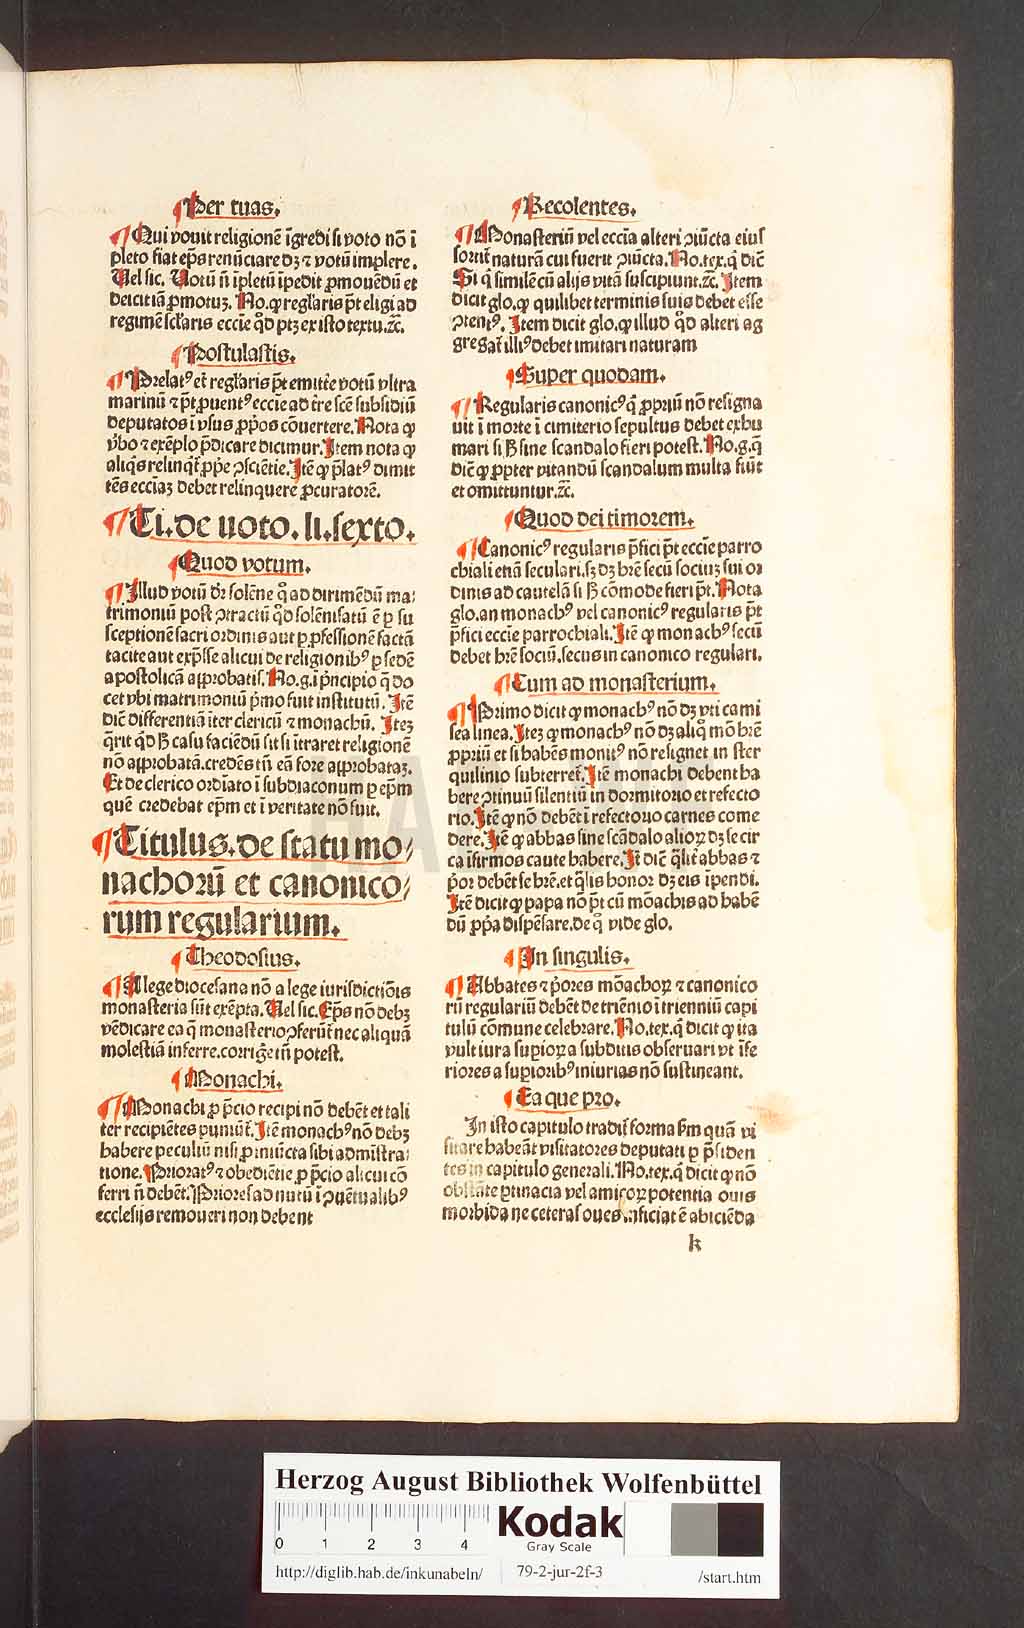 ¶Per tuas.
¶Qui vovit religionē īgredi si voto nō ī
pleto fiat ep̄s renūciare dꝫ ⁊ votū implere.
Vel sic. Votū n̄ īpletū īpedit ꝓmovēdū et
deicit iā ꝓmotuꝫ. No. ꝙ regl'aris pt̄ eligi ad
regimē scl'aris eccīe qd̄ ptꝫ ex isto textu.ꝛc̄.
¶Postulastis.
¶Prelatꝰ et regl'aris pt̄ emittē votū vltra
marinū ⁊ pt̄ ꝓuentꝰ eccīe ad tr̄e scē subsidiū
deputatos ī vsus ꝓpōs cōuertere. Nota ꝙ
v̄bo ⁊ exēplo p̄dicare dicimur. Item nota ꝙ
aliqs̄ relinqt̄ ꝓp̄e ↄsciētie. Itē ꝙ p̄latꝰ dimit
tēs eccīaꝫ debet relinquere ꝓcuratorē.
¶Ti. de uoto. li. sexto.
¶Quod votum.
¶Illud votū dꝫ solēne qd̄ ad dirimēdū ma⸗
trimoniū post ↄtractū qd̄ solēnisatū ē ꝑ su
sceptionē sacri ordinis aut ꝑ ꝓfessionē factā
tacite aut exp̄sse alicui de religionibꝰ ꝑ sedē
apostolicā aꝓbatis. No.g. ī pn̄cipio q̄ do
cet vbi matrimoniū p̄mo fuit institutū. Itē
dic̄ differentiā īter clericū ⁊ monachū. Iteꝫ
q̄rit qd̄ ħ casu faciēdū sit si ītraret religionē
nō aꝓbatā. credēs tn̄ eā fore aꝓbataꝫ.
Et de clerico ordīato ī subdiaconum ꝑ ep̄m
quē credebat ep̄m et ī veritate nō fuit.
¶Titulus. de statu mo⸗
nachorū et canonico⸗
rum regularium.
¶Theodosius.
¶A lege diocesana nō a lege iurisdictiōis
monasteria sūt exēpta. Vel sic. Ep̄s nō debꝫ
vēdicare ea q̄ monasterio ↄferūt nec aliquā
molestiā inferre. corrigē tn̄ potest.
¶Monachi.
¶Monachi ꝓ p̄cio recipi nō debēt et tali
ter recipiētes puniūt. Itē monachꝰ nō debꝫ
habere peculiū nisi ꝓ iniūcta sibi admīstra⸗
tione. Prioratꝰ ⁊ obediētie ꝓ p̄cio alicui cō
ferri n̄ debēt. Priores ad nutū ī ↄuētualibꝰ
ecclesijs remoueri non debent
¶Recolentes.
¶Monasteriū vel eccīa alteri ↄiūcta eius
sortit̄ naturā cui fuerit ↄiūcta. No.tex.q̄ dic̄
Si q̄ similē cū alijs vitā suscipiunt.ꝛc̄. Item
dicit glo. ꝙ quilibet terminis suis debet esse
ↄtentꝰ. Item dicit glo. ꝙ illud qd̄ alteri ag
gregat̄ illiꝰ debet imitari naturam
¶Super quodam.
¶Regularis canonicꝰ q̄ ꝓpriū nō resigna
uit ī morte ī cimiterio sepultus debet exhu
mari si ħ sine scandalo fieri potest. No.g.q̄
dic̄ ꝙ ꝓpter vitandū scandalum multa fiūt
et omittuntur.ꝛc̄.
¶Quod dei timorem.
¶Canonicꝰ regularis p̄fici pt̄ eccīe parro
chiali etiā seculari. sꝫ dꝫ hr̄e secū sociuꝫ sui or
dinis ad cautelā si ħ cōmode fieri pt̄. Nota
glo. an monachꝰ vel canonicꝰ regularis pt̄
p̄fici eccīe parrochiali. Itē ꝙ monachꝰ secū
debet hr̄e sociū. secus in canonico regulari.
¶Cum ad monasterium.
¶Primo dicit ꝙ monachꝰ nō dꝫ vti cami
sea linea. Iteꝫ ꝙ monachꝰ nō dꝫ aliq̄ mō hr̄e
ꝓpriū et si habēs monitꝰ nō resignet in ster
quilinio subterret̄. Itē monachi debent ha
bere ↄtinuū silentiū in dormitorio et refecto
rio. Itē ꝙ nō debēt ī refectorio carnes come
dere. Itē ꝙ abbas sine scādalo alioꝝ dꝫ se cir
ca īfirmos caute habere. It̄ dic̄ q̄lit̄ abbas ⁊
p̄or debēt se hr̄e. et q̄lis honor dꝫ eis īpendi.
Itē dicit ꝙ papa nō pt̄ cū mōachis ad habē
dū ꝓp̄a dispēsare. de q̄ vide glo.
¶In singulis.
¶Abbates ⁊ p̄ores mōachoꝝ ⁊ canonico
rū regulariū debēt de triēnio ī trienniū capi
tulū cōmune celebrare. No.tex.q̄ dicit ꝙ ita
vult iura suꝑioꝝ a subditis obseruari vt īfe
riores a suꝑioribꝰ iniurias nō sustineant.
¶Ea que pro.
In isto capitulo tradit̄ forma s̄m quā vi
sitare habeāt visitatores deputati ꝑ p̄siden
tes in capitulo generali. No.tex.q̄ dicit ꝙ nō
obstāte ꝑtinacia vel amicoꝝ potentia ouis
morbida ne ceteras oues inficiat ē abiciēda
k
Herzog August Bibliothek Wolfenbüttel
0 1 2 3 4
Kodak
Gray Scale
http://diglib.hab.de/inkunabeln/ 79-2-jur-2f-3 /start.htm
HAB